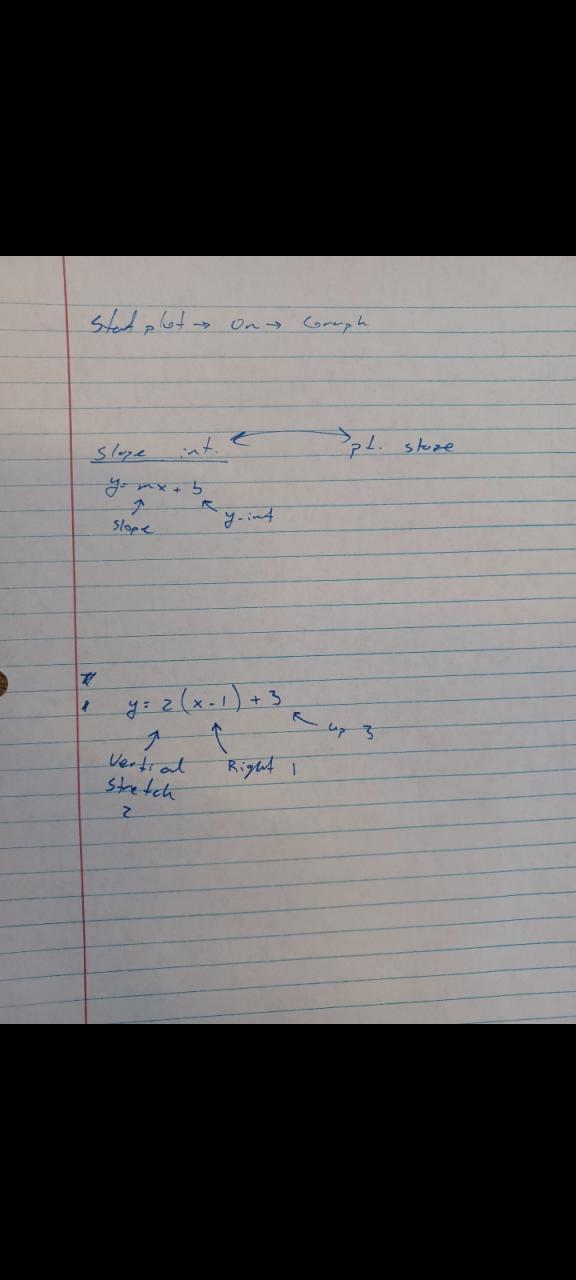 Stat plot → On → Graph
Slope int. ↔ pt. slope
y = mx + b
slope y-int
y = 2(x - 1) + 3
up 3
Vertical Right 1
Stretch
2